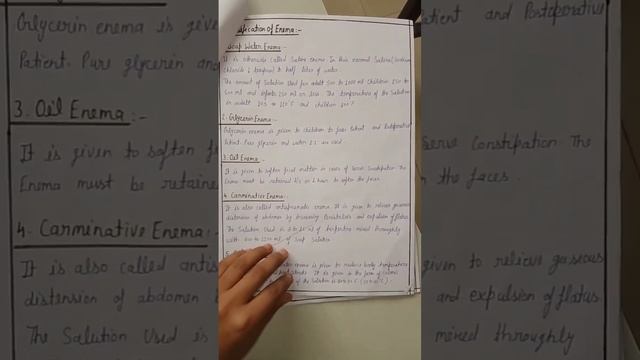 ssification of Enema:-
Soap Water Enema:-
It is otherwise called Saline enema. In this normal Saline (Sodium
Chloride & soapism) to half liter of water.
The amount of Salution Used for adult 500 to 1000 ml Children 250 to
500 ml and infants 250 ml or less. The temperature of the Salution
in adult 105 to 110°C and children 100°
2. Glycerin Enema:-
Glycerin enema is given to children to Patient and Postoperative
Patient. Pure glycerin and water 1:2 are used.
3. Oil Enema:-
It is given to soften fecal matter in cases of Severe Constipation. The
Enema must be retained 1/2 to 1 hour to soften the faces.
4. Carminative Enema:-
It is also called antispasmodic enema. It is given to relieve gaseous
distension of abdomen by increasing Peristalsis and expulsion of flatus.
The Salution Used is mixed thoroughly
with to ml of Soap Salution
enema is given to reduce body temperature
It is given in the form of
of the Salution is
Glycerin enema is given
Patient. Pure glycerin and
3. Oil Enema:-
It is given to soften
Enema must be retaine
4. Carminative Enema:-
It is also called antis
distension of abdomen b
The Salution Used is
t and Postoperative
Severe Constipation. The
the faces.
given to relieve gaseous
and expulsion of flatus.
mixed thoroughly